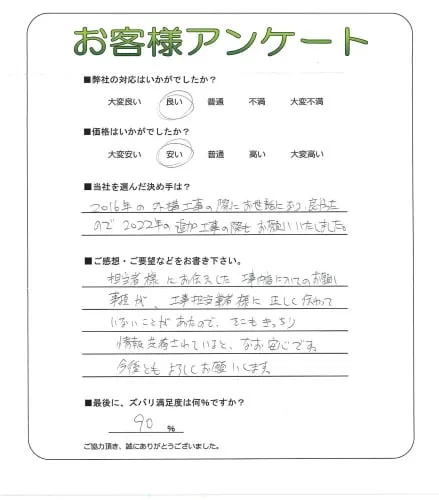 お客様アンケート
■弊社の対応はいかがでしたか?
大変良い 良い 普通 不満 大変不満
■価格はいかがでしたか?
大変安い 安い 普通 高い 大変高い
■当社を選んだ決め手は?
2016年の外構工事の際にお世話になり、良かった
ので2022年の追加工事の際もお願いいたしました。
■ご感想・ご要望などをお書き下さい。
担当者様にお伝えした工事内容についてのお願い
事項が、工事担当業者様に正しく伝わって
いないことがあったので、そこもきっちり
情報共有されていると、なお安心です。
今後ともよろしくお願いします。
■最後に、ズバリ満足度は何%ですか?
90 %
ご協力頂き、誠にありがとうございました。